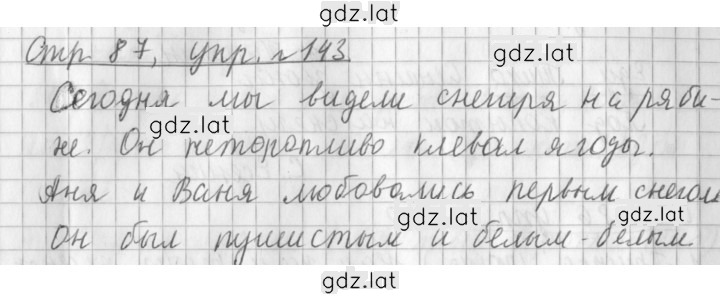 gdz.lat
Стр 87, упр. № 143.
gdz.lat
Сегодня мы видели снегиря на ряби-
gdz.lat
не. Он неторопливо клевал ягоды.
gdz.lat
Аня и Ваня любовались первым снегом
gdz.lat
gdz.lat
Он был пушистым и белым-белым
gdz.lat